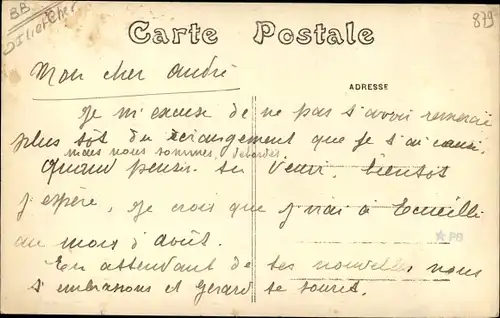 BB
879
Carte Postale
Mon cher André
ADRESSE
Je m'excuse de ne pas t'avoir remercié
plus tôt du dérangement que je t'ai causé.
mais nous sommes débordés
Quand penses tu venir, bientôt
j'espère, je crois que j'irai à Ecueillé
au mois d'août.
PB
En attendant de tes nouvelles nous
t'embrassons et Gérard te sourit.